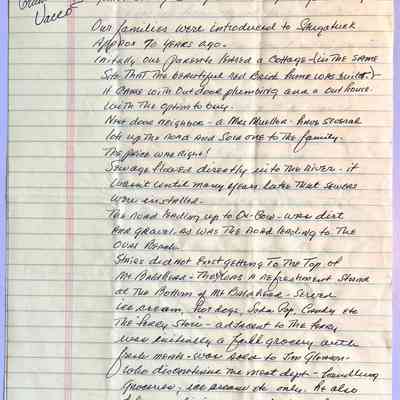 Vacco
Our families were introduced to Saugatuck
Approx 70 years ago.
Initally our parents leased a Cottage - (in the same
Site that the beautiful red Brick home was built.) -
it came with outdoor plumbing and a out house.
With the option to buy.
Next door neighbor - a Mrs Mueller - had several
lots up the road and sold one to the family.
The price was right!
Sewage flowed directly into the River - it
wasn't until many years later that sewers
were installed.
The road leading up to Ox-Bow - was dirt
and gravel as was the road leading to the
Oval Beach.
Stairs did not exist getting to the top of
Mt Baldhead - There was a refreshment stand
at the Bottom of Mt Baldhead - served
ice cream, hot dogs, Soda Pop, Candy etc
The "Ferry Store" - adjacent to the Ferry
was initially a full grocery with
fresh meats - was sold to Jim Gleason
who discontinued the meat dept - handling
groceries, ice cream etc only. He also